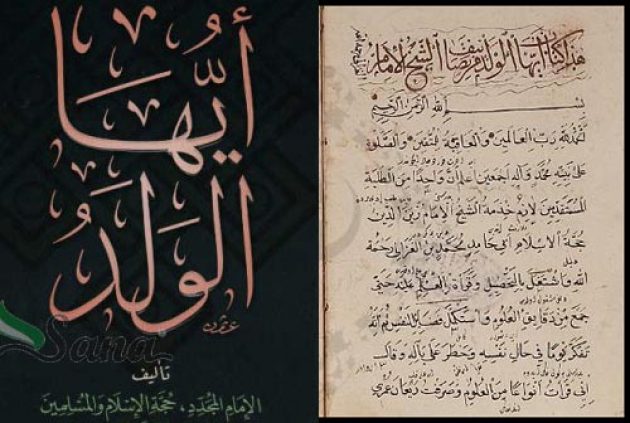 أيُّها
الولَدُ
Sana
تأليف
الإمام المجدّد، حجّة الإسلام والمسلمين
هذا كتاب ايها الولد من تصانيف الشيخ الامام
بسم الله الرحمن الرحيم
الحمد لله رب العالمين والعاقبة للمتقين والصلوة
على نبيه محمد وآله اجمعين اعلم ان واحدا من الطلبة
المتقدمين لازم خدمة الشيخ الامام زين الدين
حجة الاسلام ابي حامد محمد بن الغزالي رحمة
الله واشتغل بالتحصيل وقراءة العلم عليه حتى
جمع من دقايق العلوم واستكمل فضايل النفس ثم انه
تفكر يوما في حال نفسه وخطر على باله وقال
اني قرأت انواعا من العلوم وصرفت ريعان عمري